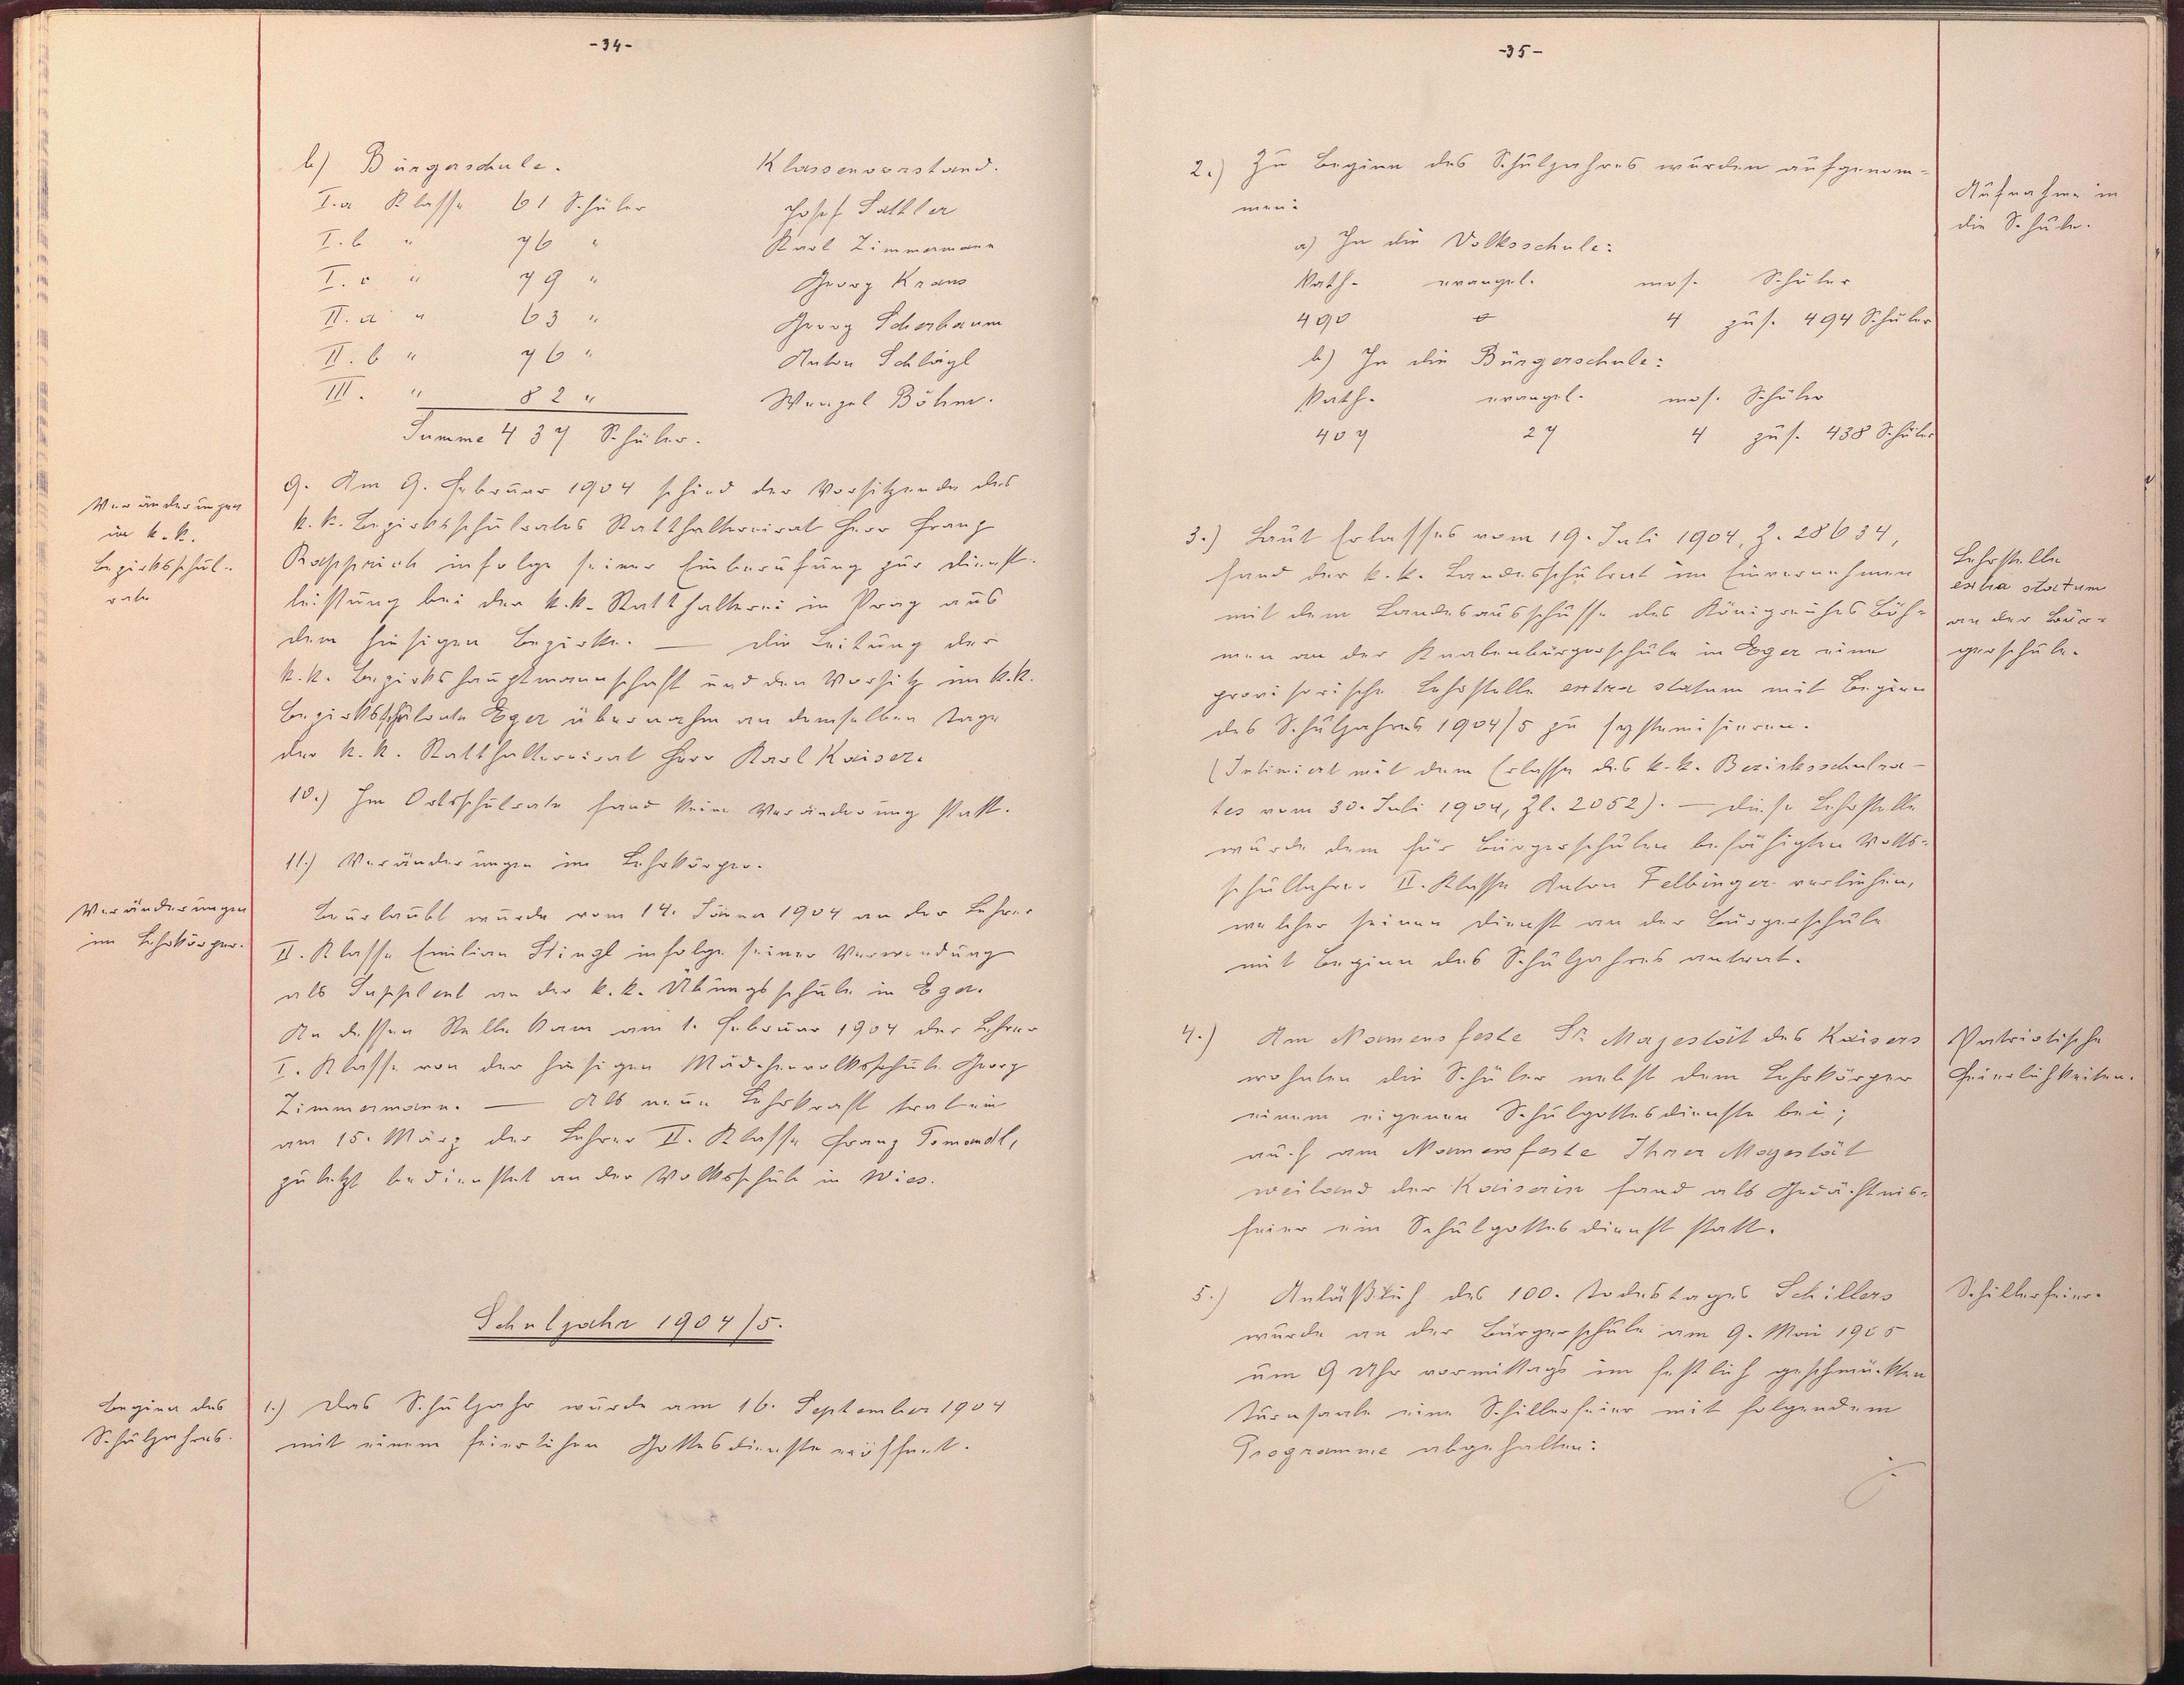 -34-
b) Bürgerschule. Klassenvorstand.
I.a Klasse 61 Schüler Josef Sattler
I.b " 76 " Karl Zimmermann
I.c " 79 " Georg Kraus
II.a " 63 " Georg Scherbaum
II.b " 76 " Anton Schlögl
III. " 82 " Wenzel Böhm.
Summe 437 Schüler.
Veränderungen
im k.k.
Bezirksschul-
rate
9. Am 9. Februar 1904 schied der Vorsitzende des
k.k. Bezirksschulrates Statthaltereirat Herr Franz
infolge seiner Einberufung zur Dienst-
leistung bei der k.k. Statthalterei in Prag aus
dem hiesigen Bezirke. — Die Leitung der
k.k. Bezirkshauptmannschaft und den Vorsitz im k.k.
Bezirksschulrate Eger übernahm an demselben Tage
der k.k. Statthaltereirat Herr Karl Kaiser.
10.) Im Ortsschulrate fand keine Veränderung statt.
11.) Veränderungen im Lehrkörper.
Veränderungen
im Lehrkörper.
Beurlaubt wurde vom 14. Jänner 1904 an der Lehrer
II. Klasse Emilian Stingl infolge seiner Verwendung
als Supplent an der k.k. Übungsschule in Eger.
An dessen Stelle kam am 1. Februar 1904 der Lehrer
I. Klasse von der hiesigen Mädchenvolksschule Georg
Zimmermann. — Als neue Lehrkraft trat ein
am 15. März der Lehrer II. Klasse Franz Tomandl,
zuletzt bedienstet an der Volksschule in Wies.
Schuljahr 1904/5.
Beginn des
Schuljahres.
1.) Das Schuljahr wurde am 16. September 1904
mit einem feierlichen Gottesdienste eröffnet.
-35-
2.) Zu Beginn des Schuljahres wurden aufgenom-
men:
Aufnahme in
die Schule.
a) In die Volksschule:
Kath. evangel. mos. Schüler
490 0 4 zus. 494 Schüler
b) In die Bürgerschule:
Kath. evangel. mos. Schüler
407 27 4 zus. 438 Schüler
3.) Laut Erlasses vom 19. Juli 1904, Z. 28634,
fand der k.k. Landesschulrat im Einvernehmen
mit dem Landesausschusse des Königreiches Böh-
men an der Knabenbürgerschule in Eger eine
provisorische Lehrstelle extra statum mit Beginn
des Schuljahres 1904/5 zu systemisieren.
(Intimiert mit dem Erlasse des k.k. Bezirksschulra-
tes vom 30. Juli 1904, Zl. 2052). — Diese Lehrstelle
wurde dem für Bürgerschulen befähigten Volks-
schullehrer II. Klasse Anton Felbinger verliehen,
welcher seinen Dienst an der Bürgerschule
mit Beginn des Schuljahres antrat.
Lehrstelle
extra statum
an der Bür-
gerschule.
4.) Am Namensfeste Sr. Majestät des Kaisers
wohnten die Schüler nebst dem Lehrkörper
einem eigenen Schulgottesdienste bei;
auch am Namensfeste Ihrer Majestät
weiland der Kaiserin fand als Gedächtnis-
feier ein Schulgottesdienst statt.
Patriotische
Feierlichkeiten.
5.) Anläßlich des 100. Todestages Schillers
wurde an der Bürgerschule am 9. Mai 1905
um 9 Uhr vormittags im festlich geschmückten
Turnsaale eine Schillerfeier mit folgendem
Programme abgehalten:
Schillerfeier.